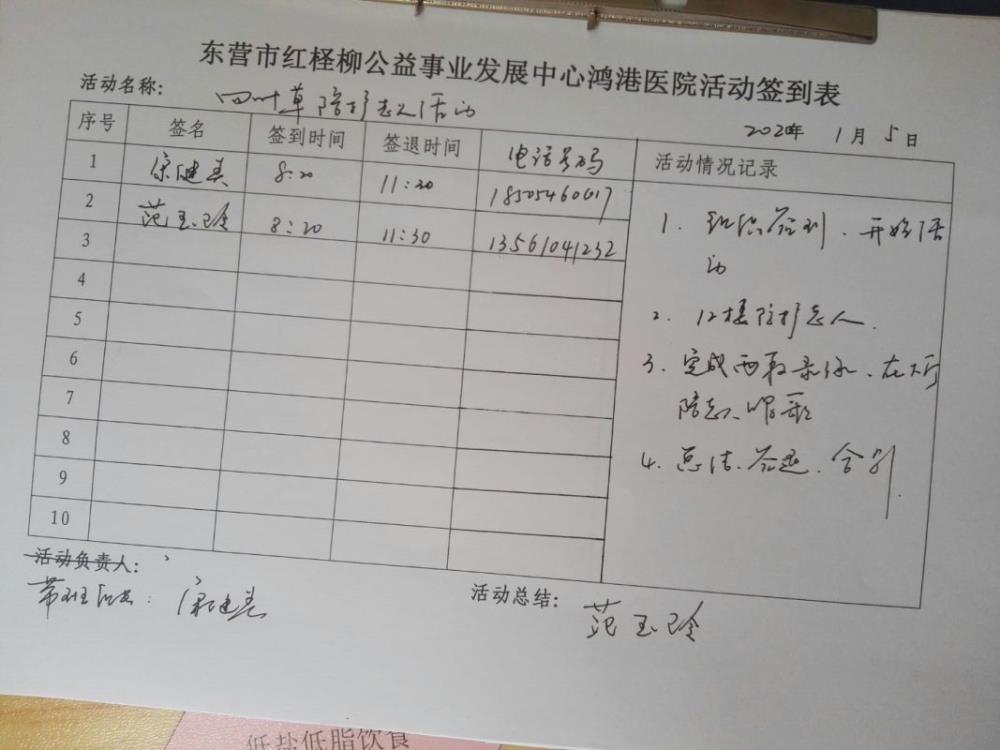 东营市红柽柳公益事业发展中心鸿港医院活动签到表
活动名称： 四叶草陪护老人活动
2020年 1月 5日
序号 签名 签到时间 签退时间 电话号码 活动情况记录
1 宋健美 8:20 11:30 18505460617
2 范玉玲 8:20 11:30 13561041232
3
4
5
6
7
8
9
10
1. 组织签到、开始活
动
2. 12楼陪护老人.
3. 完成两取录像、在大厅
陪老人唱歌
4. 总结、签退、合影.
活动负责人：
带班队长： 宋健美
活动总结： 范玉玲
低盐低脂饮食